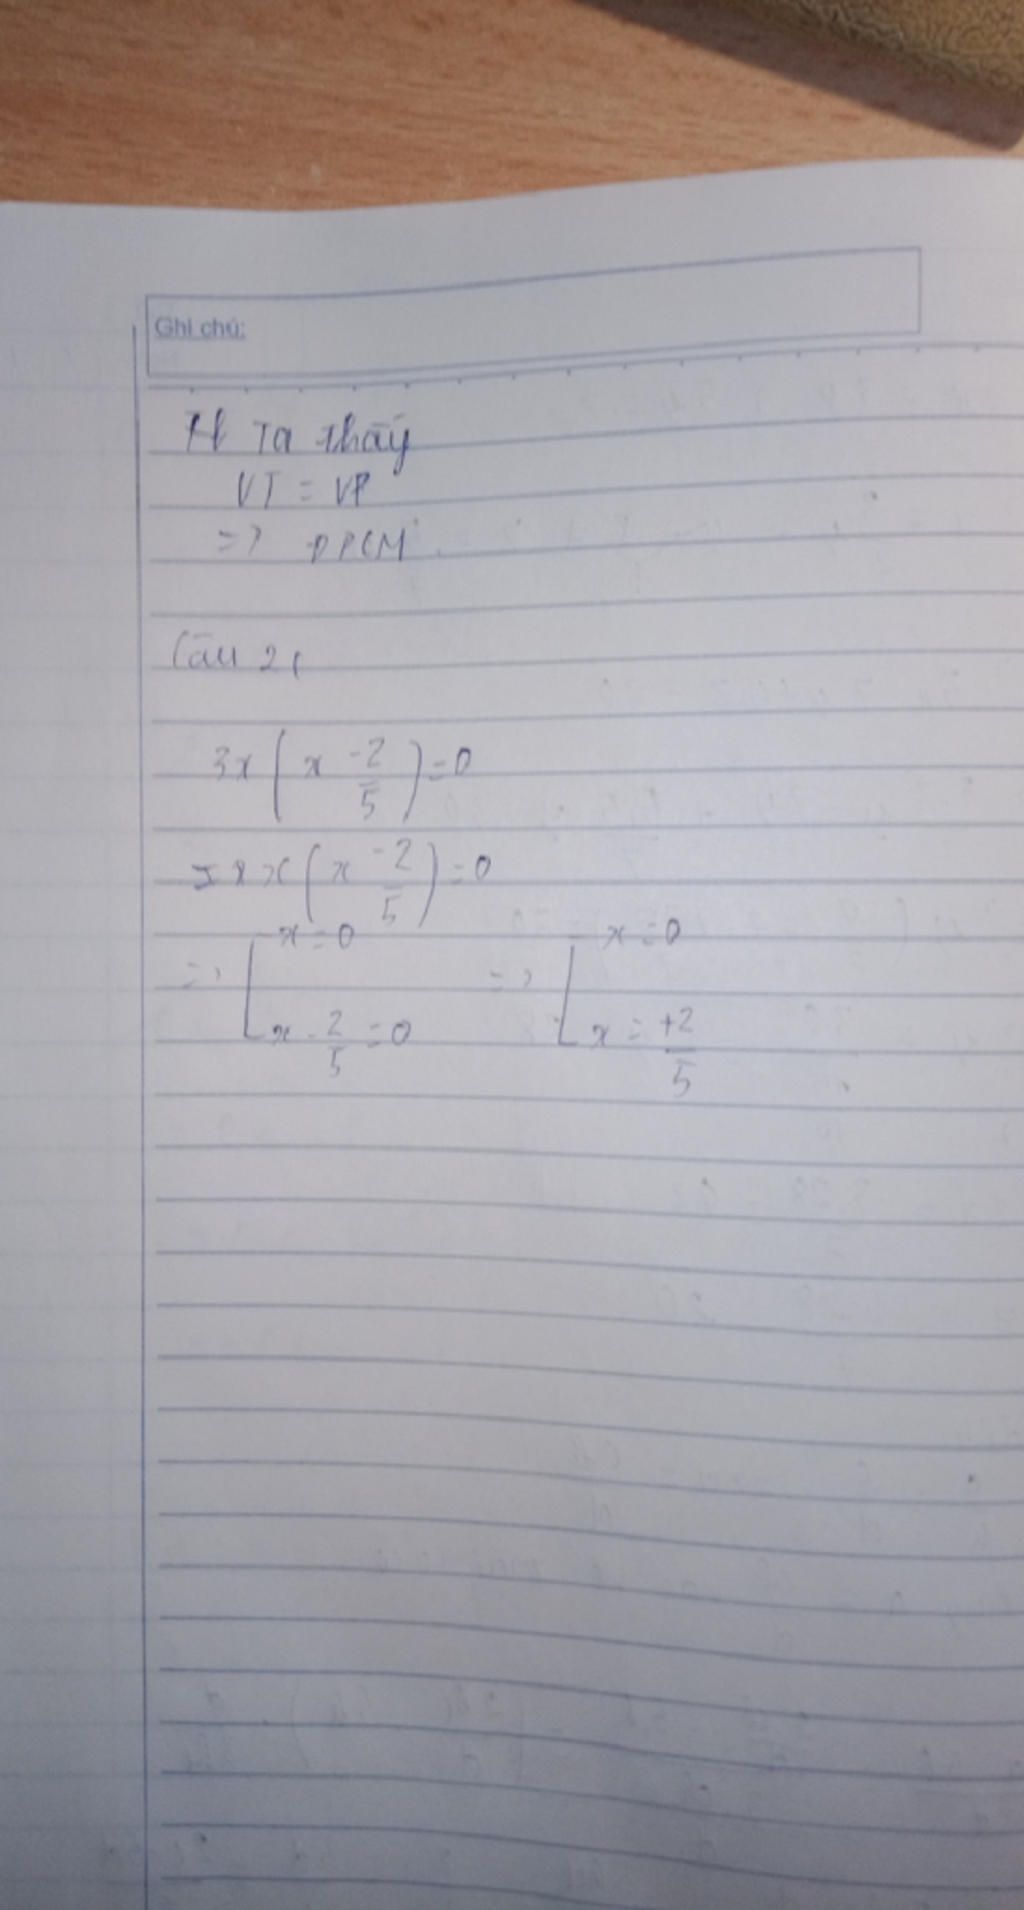 Ghi chú:
Ta thấy
VT = VP
=> ĐPCM
Câu 2(
3x ( x - 2/5 ) = 0
x ( x - 2/5 ) = 0
=> [ x = 0 => [ x = 0
x - 2/5 = 0 x = +2/5